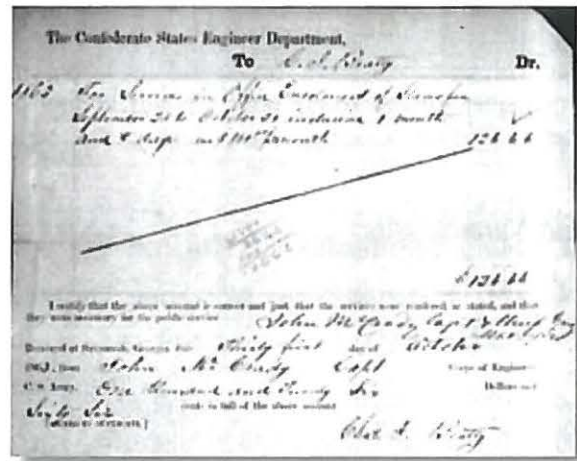 The Confederate States Engineer Department,
To Beaty Dr.
1863 For Services in Office
September 24 to October 31 inclusive 1 month
and days at per month 126 66
$ 126 66
I certify that the above account is correct and just; that the services were rendered as stated, and that
they were necessary for the public service.
John McCrady Capt
Received at Savannah, Georgia, this Thirty first day of October
1863, from John McCrady Capt Corps of Engineers
C. S. Army, One Hundred and Twenty Six Dollars and
Sixty Six cents in full of the above account.
[SIGNED IN DUPLICATE.]
Chas. Beaty